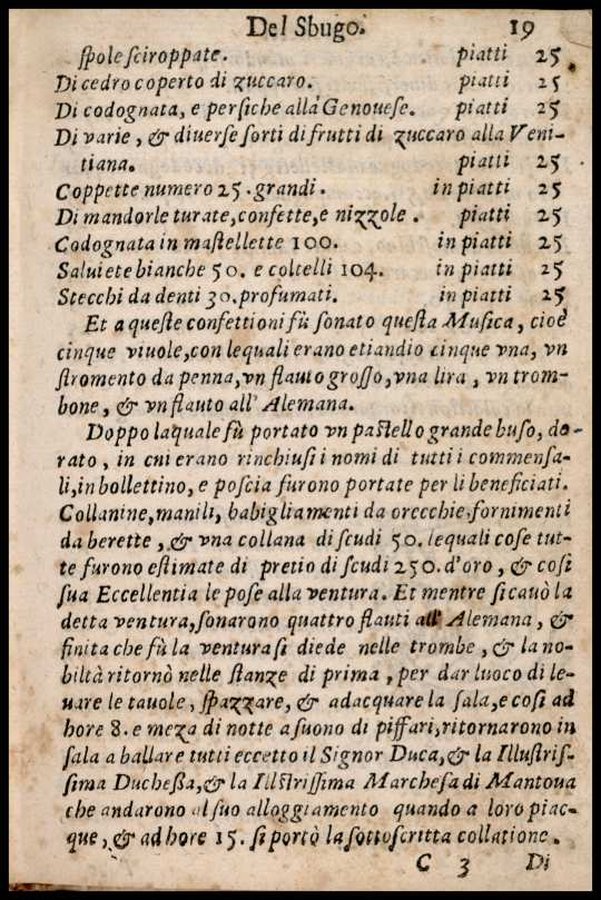 Del Sbugo. 19
ſpole ſciroppate. piatti 25
Di cedro coperto di zuccaro. piatti 25
Di codognata, e perſiche alla Genoueſe. piatti 25
Di varie, & diuerſe ſorti di frutti di zuccaro alla Veni-
tiana. piatti 25
Coppette numero 25. grandi. in piatti 25
Di mandorle turate, confette, e nizzole. piatti 25
Codognata in maſtellette 100. in piatti 25
Saluiete bianche 50. e coltelli 104. in piatti 25
Stecchi da denti 30. profumati. in piatti 25
Et a queſte confettioni fù ſonato queſta Muſica, cioè
cinque viuole, con lequali erano etiandio cinque vna, vn
ſtromento da penna, vn flauto groſſo, vna lira, vn trom-
bone, & vn flauto all' Alemana.
Doppo laquale fù portato vn paſtello grande buſo, do-
rato, in cui erano rinchiuſi i nomi di tutti i commenſa-
li, in bollettino, e poſcia furono portate per li beneficiati.
Collanine, manili, babigliamenti da orecchie, fornimenti
da berette, & vna collana di ſcudi 50. lequali coſe tut-
te furono eſtimate di pretio di ſcudi 250. d'oro, & coſi
ſua Eccellentia le poſe alla ventura. Et mentre ſi cauò la
detta ventura, ſonarono quattro flauti all' Alemana, &
finita che fù la ventura ſi diede nelle trombe, & la no-
biltà ritornò nelle ſtanze di prima, per dar luoco di le-
uare le tauole, ſpazzare, & adacquare la ſala, e coſi ad
hore 8. e meza di notte a ſuono di piffari, ritornarono in
ſala a ballare tutti eccetto il Signor Duca, & la Illuſtriſ-
ſima Ducheßa, & la Illſtriſſima Marcheſa di Mantoua
che andarono al ſuo alloggiamento quando a loro piac-
que, & ad hore 15. ſi portò la ſottoſcritta collatione.
C 3 Di